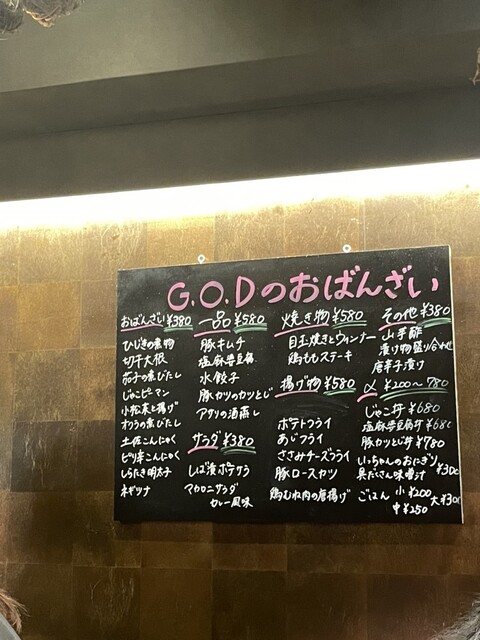 G.O.Dのおばんざい
おばんざい ¥380
ひじきの煮物
切干大根
茄子の煮びたし
じゃこピーマン
小松菜と揚げ
オクラの煮びたし
土佐こんにゃく
ピリ辛こんにゃく
しらたき明太子
ネギツナ
一品 ¥580
豚キムチ
塩麻婆豆腐
水餃子
豚カツのカツとじ
アサリの酒蒸し
サラダ ¥380
しば漬ポテサラ
マカロニサラダ
カレー風味
焼き物 ¥580
目玉焼きとウィンナー
鶏ももステーキ
揚げ物 ¥580
ポテトフライ
あじフライ
ささみチーズフライ
豚ロースカツ
鶏むね肉の唐揚げ
その他 ¥380
山芋酢
漬け物盛り合わせ
唐辛子漬け
〆 ¥200〜780
じゃこ丼 ¥680
塩麻婆豆腐丼 ¥680
豚カツとじ丼 ¥780
いっちゃんのおにぎり
具だくさん味噌汁 ¥300
ごはん 小¥200 大¥300
中¥250